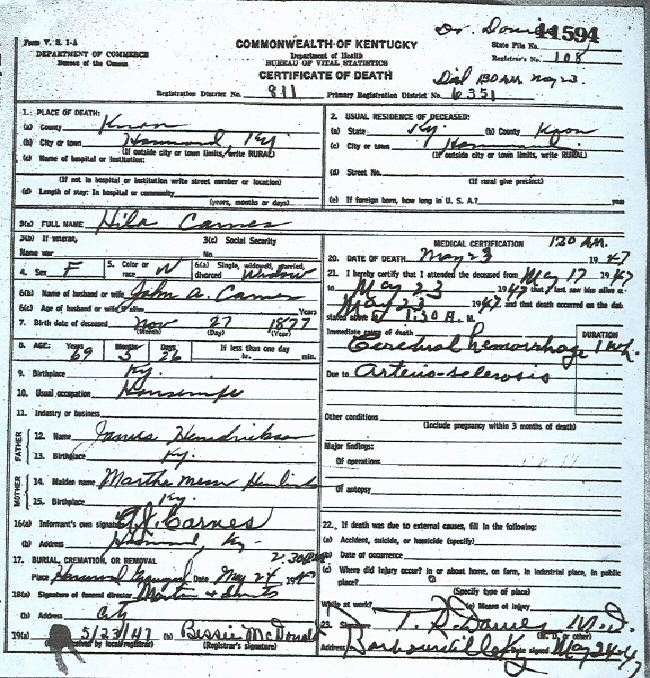 Dr. Davies 11594
Form V. S. 1-A
DEPARTMENT OF COMMERCE
Bureau of the Census
COMMONWEALTH OF KENTUCKY
Department of Health
BUREAU OF VITAL STATISTICS
CERTIFICATE OF DEATH
State File No.
Registrar's No. 108
Died 1:30 AM May 23
Registration District No. 811 Primary Registration District No. 6351
1. PLACE OF DEATH:
(a) County Knox
(b) City or town Hammond Ky
(If outside city or town limits, write RURAL)
(c) Name of hospital or institution:
(If not in hospital or institution write street number or location)
(d) Length of stay: In hospital or community
(years, months or days)
2. USUAL RESIDENCE OF DECEASED:
(a) State Ky. (b) County Knox
(c) City or town Hammond
(If outside city or town limits, write RURAL)
(d) Street No.
(If rural give precinct)
(e) If foreign born, how long in U. S. A.? year
3(a) FULL NAME Hila Carnes
3(b) If veteran, Name war
3(c) Social Security No.
4. Sex F 5. Color or race W 6(a) Single, widowed, married, divorced Widow
6(b) Name of husband or wife John A. Carnes
6(c) Age of husband or wife if alive Years
7. Birth date of deceased Nov 27 1877
(Month) (Day) (Year)
8. AGE: Years Months Days If less than one day
69 5 26 hr. min.
9. Birthplace Ky.
10. Usual occupation Housewife
11. Industry or business
FATHER
12. Name James Hendrickson
13. Birthplace Ky.
MOTHER
14. Maiden name Martha
15. Birthplace Ky
16(a) Informant's own signature Carnes
(b) Address Hammond, Ky.
17. BURIAL, CREMATION, OR REMOVAL 2:30
Place Hammond Graveyard Date May 24 19
18(a) Signature of funeral director Martin &
(b) Address City
19(a) 5/23/47 (b) Bessie McDonald
(Date received by local registrar) (Registrar's signature)
MEDICAL CERTIFICATION 1:30 AM.
20. DATE OF DEATH May 23 1947
21. I hereby certify that I attended the deceased from May 17 1947
to May 23 1947 that I last saw him alive on
May 23 1947 and that death occurred on the date
stated above at 1:30 A. M.
Immediate cause of death DURATION
Cerebral hemorrhage 1 wk.
Due to Arterio-sclerosis
Other conditions
(Include pregnancy within 3 months of death)
Major findings:
Of operations
Of autopsy
22. If death was due to external causes, fill in the following:
(a) Accident, suicide, or homicide (specify)
(b) Date of occurrence
(c) Where did injury occur? in or about home, on farm, in industrial place, in public place?
(Specify type of place)
While at work? (e) Means of injury
23. Signature Davies M.D.
(M. D. or other)
Address Barbourville Ky Date signed May 24-47